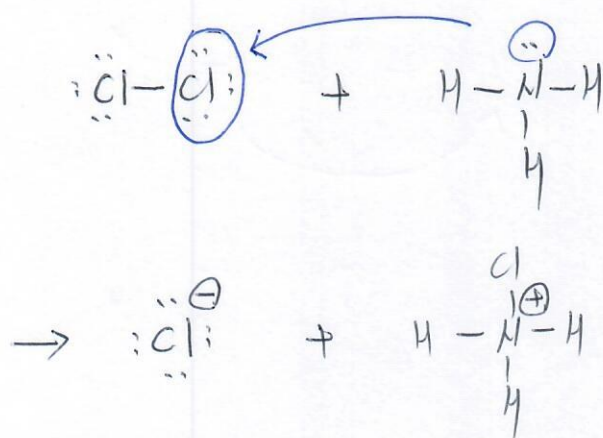 :Cl—Cl: + H—N—H
H
Cl
→ :Cl:⊖ + H—N⊕—H
H